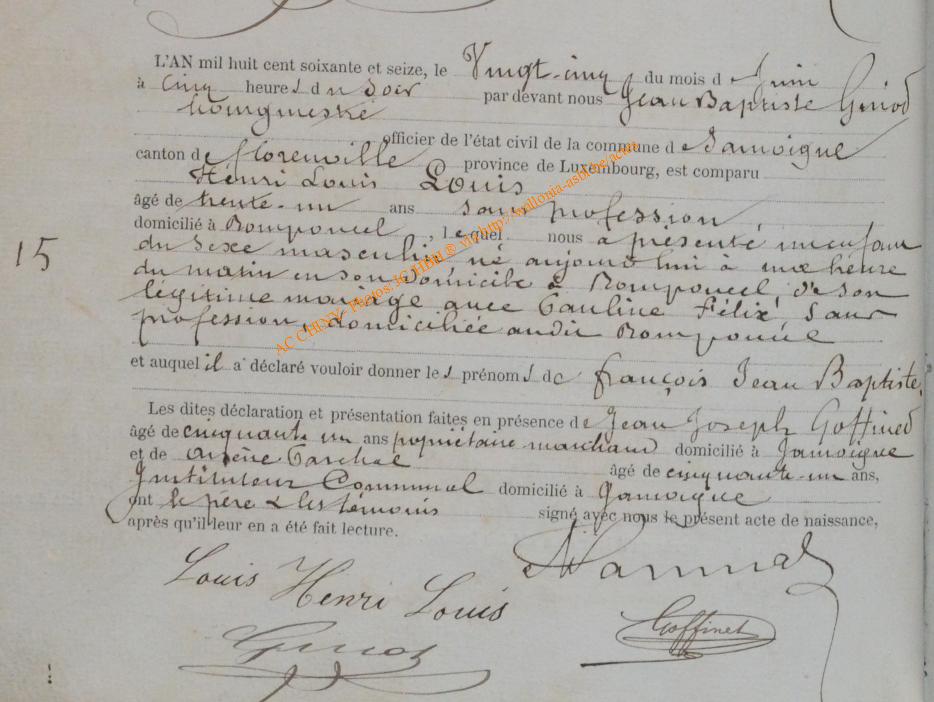 L'AN mil huit cent soixante et seize, le Vingt-cinq du mois d e Juin
à Cinq heures du Soir par devant nous Jean Baptiste Guiod
bourgmestre
officier de l'état civil de la commune de Jamoigne
canton de florenville province de Luxembourg, est comparu
Henri Louis Louis
âgé de trente-un ans sans profession
domicilié à Romponcel, lequel nous a présenté, un enfant
du Sexe masculin né aujourd'hui à une heure
du matin en son domicile à Romponcel, de son
légitime mariage avec Pauline Félix, Sans
profession, domiciliée audit Romponcel
et auquel il a déclaré vouloir donner les prénoms de françois Jean Baptiste
15
Les dites déclaration et présentation faites en présence de Jean Joseph Goffinet
âgé de cinquante un ans propriétaire marchand domicilié à Jamoigne
et de âgé de cinquante-un ans,
Instituteur Communal domicilié à Jamoigne
ont le père & les témoins signé avec nous le présent acte de naissance,
après qu'il leur en a été fait lecture.
Louis Henri Louis
Goffinet
AC CHINY- Photos JC HBN ® via http://wallonia-asbl.be/actes